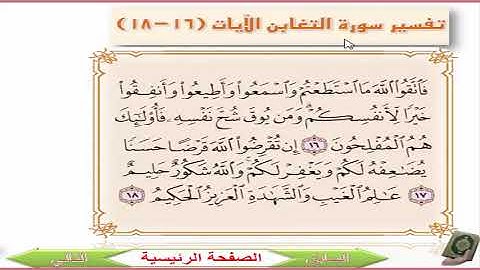 تفسير سورة التغابن الآيات (١٦-١٨)
فَٱتَّقُوا۟ ٱللَّهَ مَا ٱسْتَطَعْتُمْ وَٱسْمَعُوا۟ وَأَطِيعُوا۟ وَأَنفِقُوا۟
خَيْرًا لِّأَنفُسِكُمْ ۗ وَمَن يُوقَ شُحَّ نَفْسِهِۦ فَأُو۟لَٰٓئِكَ
هُمُ ٱلْمُفْلِحُونَ ١٦ إِن تُقْرِضُوا۟ ٱللَّهَ قَرْضًا حَسَنًا
يُضَٰعِفْهُ لَكُمْ وَيَغْفِرْ لَكُمْ ۚ وَٱللَّهُ شَكُورٌ حَلِيمٌ
١٧ عَٰلِمُ ٱلْغَيْبِ وَٱلشَّهَٰدَةِ ٱلْعَزِيزُ ٱلْحَكِيمُ ١٨
السابق الصفحة الرئيسية التالي